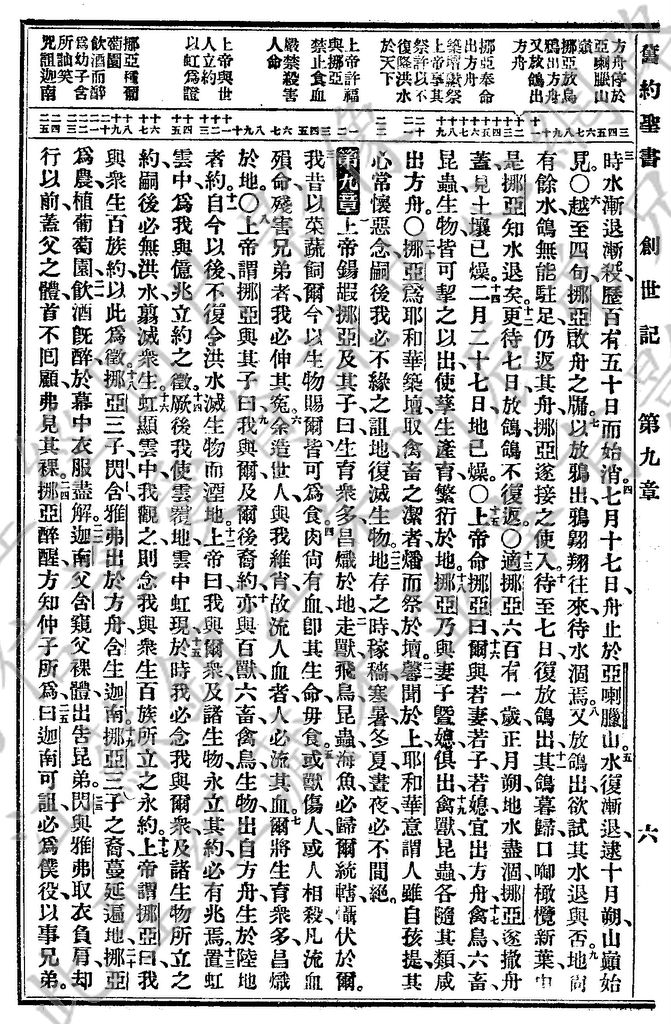 舊約聖書 創世記 第九章 六
方舟停於
亞喇臘山
嶺
挪亞放鳥
鴉出方舟
又放鴿出
方舟
挪亞奉命
出方舟
築壇獻祭
上帝享其
祭許以不
復降洪水
於天下
上帝許福
與挪亞
禁止食血
嚴禁殺害
人命
上帝與世
人立約
以虹為證
挪亞種葡
萄園
飲酒而醉
為幼子含
所訕笑
咒詛迦南
時水漸退漸殺、歷百有五十日而始消。七月十七日、舟止於亞喇臘山、水復漸退、逮十月朔、山巔始
見。〇越至四旬、挪亞啟舟之牖、以放鴉出、鴉翱翔往來、待水涸焉。又放鴿出、欲試其水退與否。地尚
有餘水、鴿無能駐足、仍返其舟、挪亞遂接之使入。待至七日、復放鴿出、其鴿暮歸、口啣橄欖新葉、由
是挪亞知水退矣。更待七日、放鴿、鴿不復返。〇適挪亞六百有一歲、正月朔、地水盡涸、挪亞遂撤舟
蓋、見土壤已燥。二月二十七日、地已燥。〇上帝命挪亞曰、爾與若妻、若子、若媳、宜出方舟、禽鳥六畜
昆蟲生物、皆可挈之以出、使孳生產育、繁衍於地、挪亞乃與妻子暨媳俱出、禽獸昆蟲、各隨其類、咸
出方舟。〇挪亞為耶和華築壇、取禽畜之潔者、燔而祭於壇、馨聞於上、耶和華意謂人雖自孩提、其
心常懷惡念、嗣後我必不緣之詛地、復滅生物、地存之時、稼穡寒暑、冬夏晝夜、必不間絕。
第九章 上帝錫嘏挪亞及其子曰、生育眾多、昌熾於地、走獸飛鳥、昆蟲海魚、必歸爾統轄、懾伏於爾。
我昔以菜蔬飼爾、今以生物賜爾、皆可為食、肉尚有血、卽其生命、毋食、或獸傷人、或人相殺、凡流血
殞命、殘害兄弟者、我必伸其冤。余造世人、與我維肖、故流人血者、人必流其血、爾將生育眾多、昌熾
於地。〇上帝謂挪亞與其子曰、我與爾及爾後裔約、亦與百獸六畜、禽鳥生物、出自方舟、生於陸地
者約、自今以後、不復令洪水滅生物而湮地。上帝曰、我與爾眾及諸生物、永立其約、必有兆焉、置虹
雲中、為我與億兆立約之徵、厥後我使雲覆地、雲中虹現、於時我必念我與爾眾及諸生物所立之
約、嗣後必無洪水翦滅眾生、虹顯雲中、我觀之、則念我與眾生百族所立之永約、上帝謂挪亞曰、我
與眾生百族約、以此為徵。挪亞三子、閃含雅弗、出於方舟、含生迦南、挪亞三子之裔、蔓延遍地、挪亞
為農、植葡萄園、飲酒旣醉、於幕中衣服盡解、迦南父含、窺父裸體、出告昆弟、閃與雅弗、取衣負肩、却
行以前、蓋父之體、首不回顧、弗見其裸、挪亞醉醒、方知仲子所為、曰、迦南可詛、必為僕役、以事兄弟。